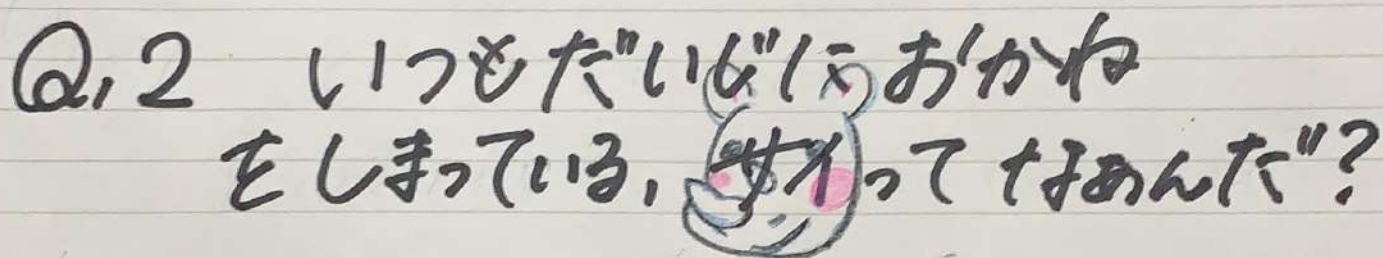 Q,2 いつもだいじにおかね
をしまっている,サイってなあんだ?